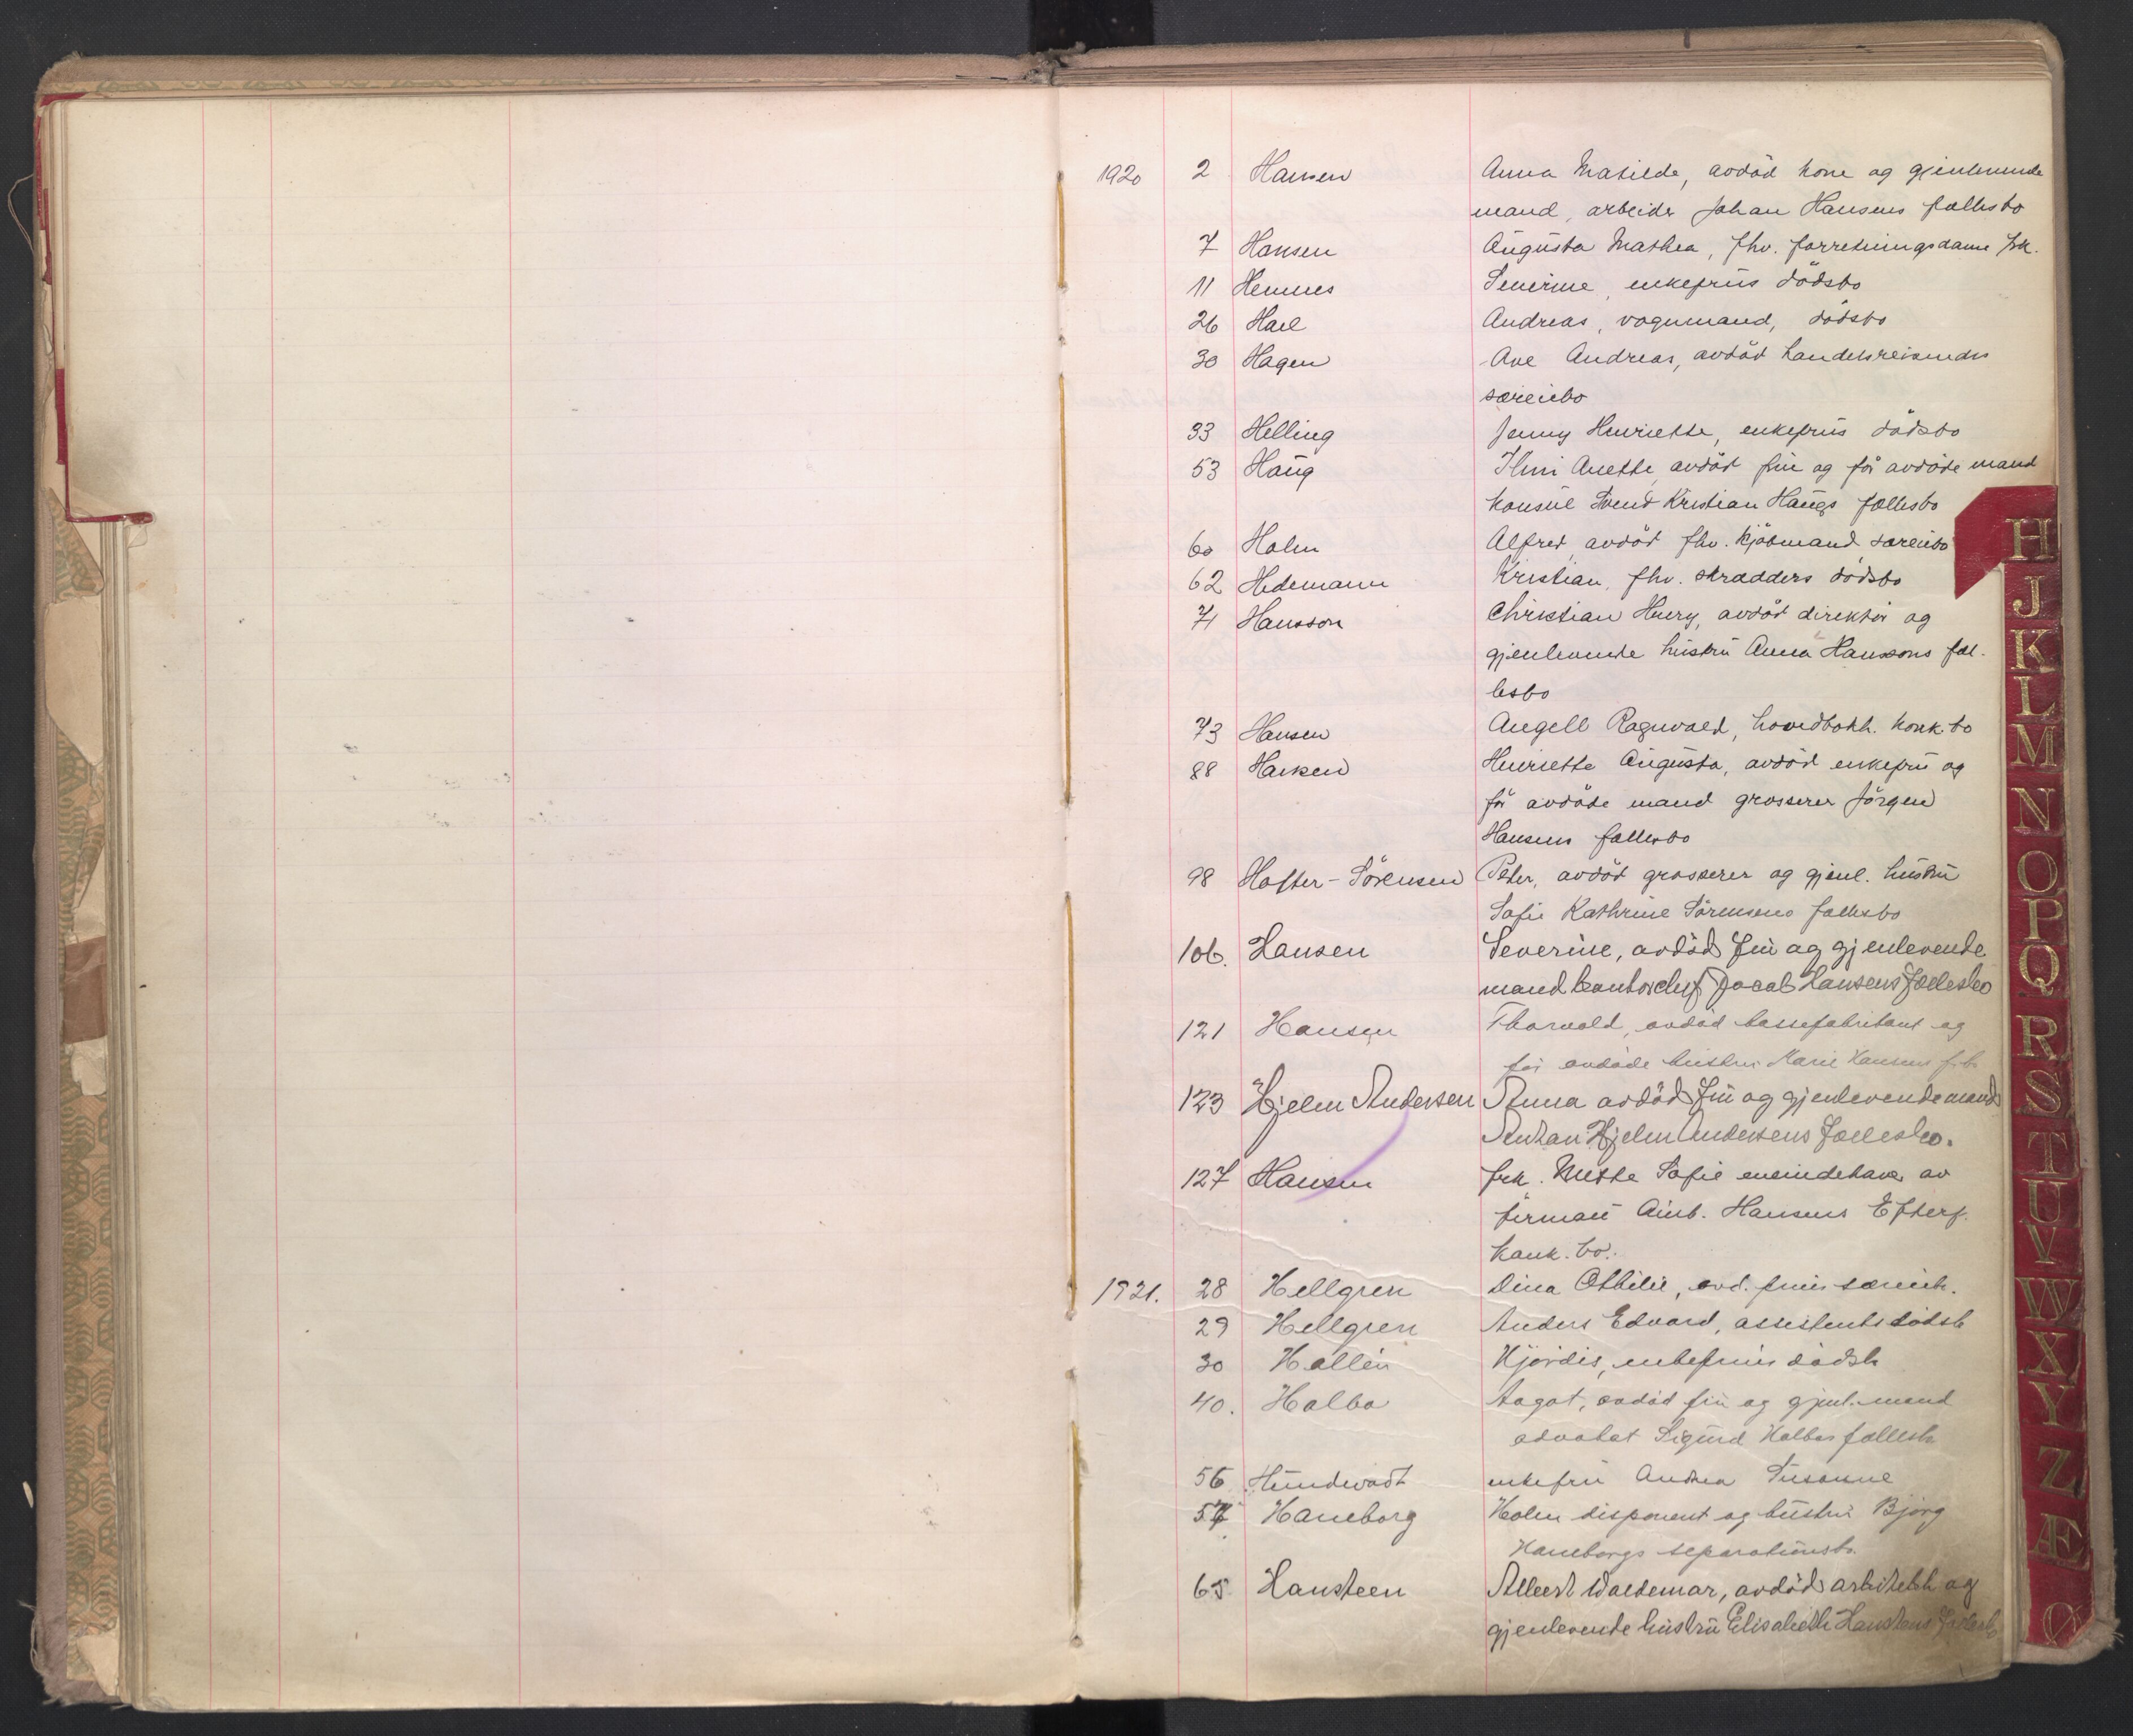 1920 2 Hansen Anna Matilde, avdöd kone og gjenlevende
mand, arbeider Johan Hansens fællesbo
7 Hansen Augusta Mathea, fhv. forretningsdame frk.
11 Hemnes Severine, enkefrus dödsbo
26 Hael Andreas, vognmand, dödsbo
30 Hagen Ove Andreas, avdöd handelsreisendes
særeiebo
33 Helling Jenny Henriette, enkefrus dödsbo
53 Haug Anette, avdöd frue og för avdöde mand
konsul Svend Kristian Haugs fællesbo
60 Holm Alfred, avdöd fhv. kjöbmand særeiebo
62 Hedemann Kristian, fhv. skrædders dödsbo
71 Hansson Christian Henry, avdöd direktör og
gjenlevende hustru Anna Hanssons fæl-
lesbo
73 Hansen Angell Ragnvald, hovedbokh. konk.bo
88 Hansen Henriette Augusta, avdöd enkefru og
för avdöde mand grosserer Jörgen
Hansens fællesbo
98 Hofter-Sörensen Peter, avdöd grosserer og gjenl. hustru
Sofie Kathrine Sörensens fællesbo
106. Hansen Severine, avdöd fru og gjenlevende
mand kontorchef Jacob Hansens Fællesbo
121 Hansen Thorvald, avdöd kassefabrikant og
för avdöde hustru Marie Hansens f.b.
123 Hjelm Andersen Anna avdöd fru og gjenlevende mand
Hjelm Andersens Fællesbo.
127 Hansen frk. Mette Sofie eneindehaver av
firmaet Amb. Hansens Efterf.
konk. bo.
1921. 28 Hellgren Dina Othilie, avd. frues særeieb.
29 Hellgren Anders Edvard, assistents dödsb
30 Hallén Hjördis, enkefrues dödsb
40. Halbo Aagot, avdöd fru og gjenl. mand
advokat Sigurd Halbos fællesb
56 Hundevadt enkefru Andrea Susanne
57 Haneborg Holm disponent og hustru Björg
Haneborgs separationsbo.
65 Hansteen Albert Waldemar, avdöd arkitekt og
gjenlevende hustru Elisabeth Hansteens Fællesbo
H
J
K
L
M
N
O
P
Q
R
S
T
U
V
W
X
Y
Z
Æ
Ø